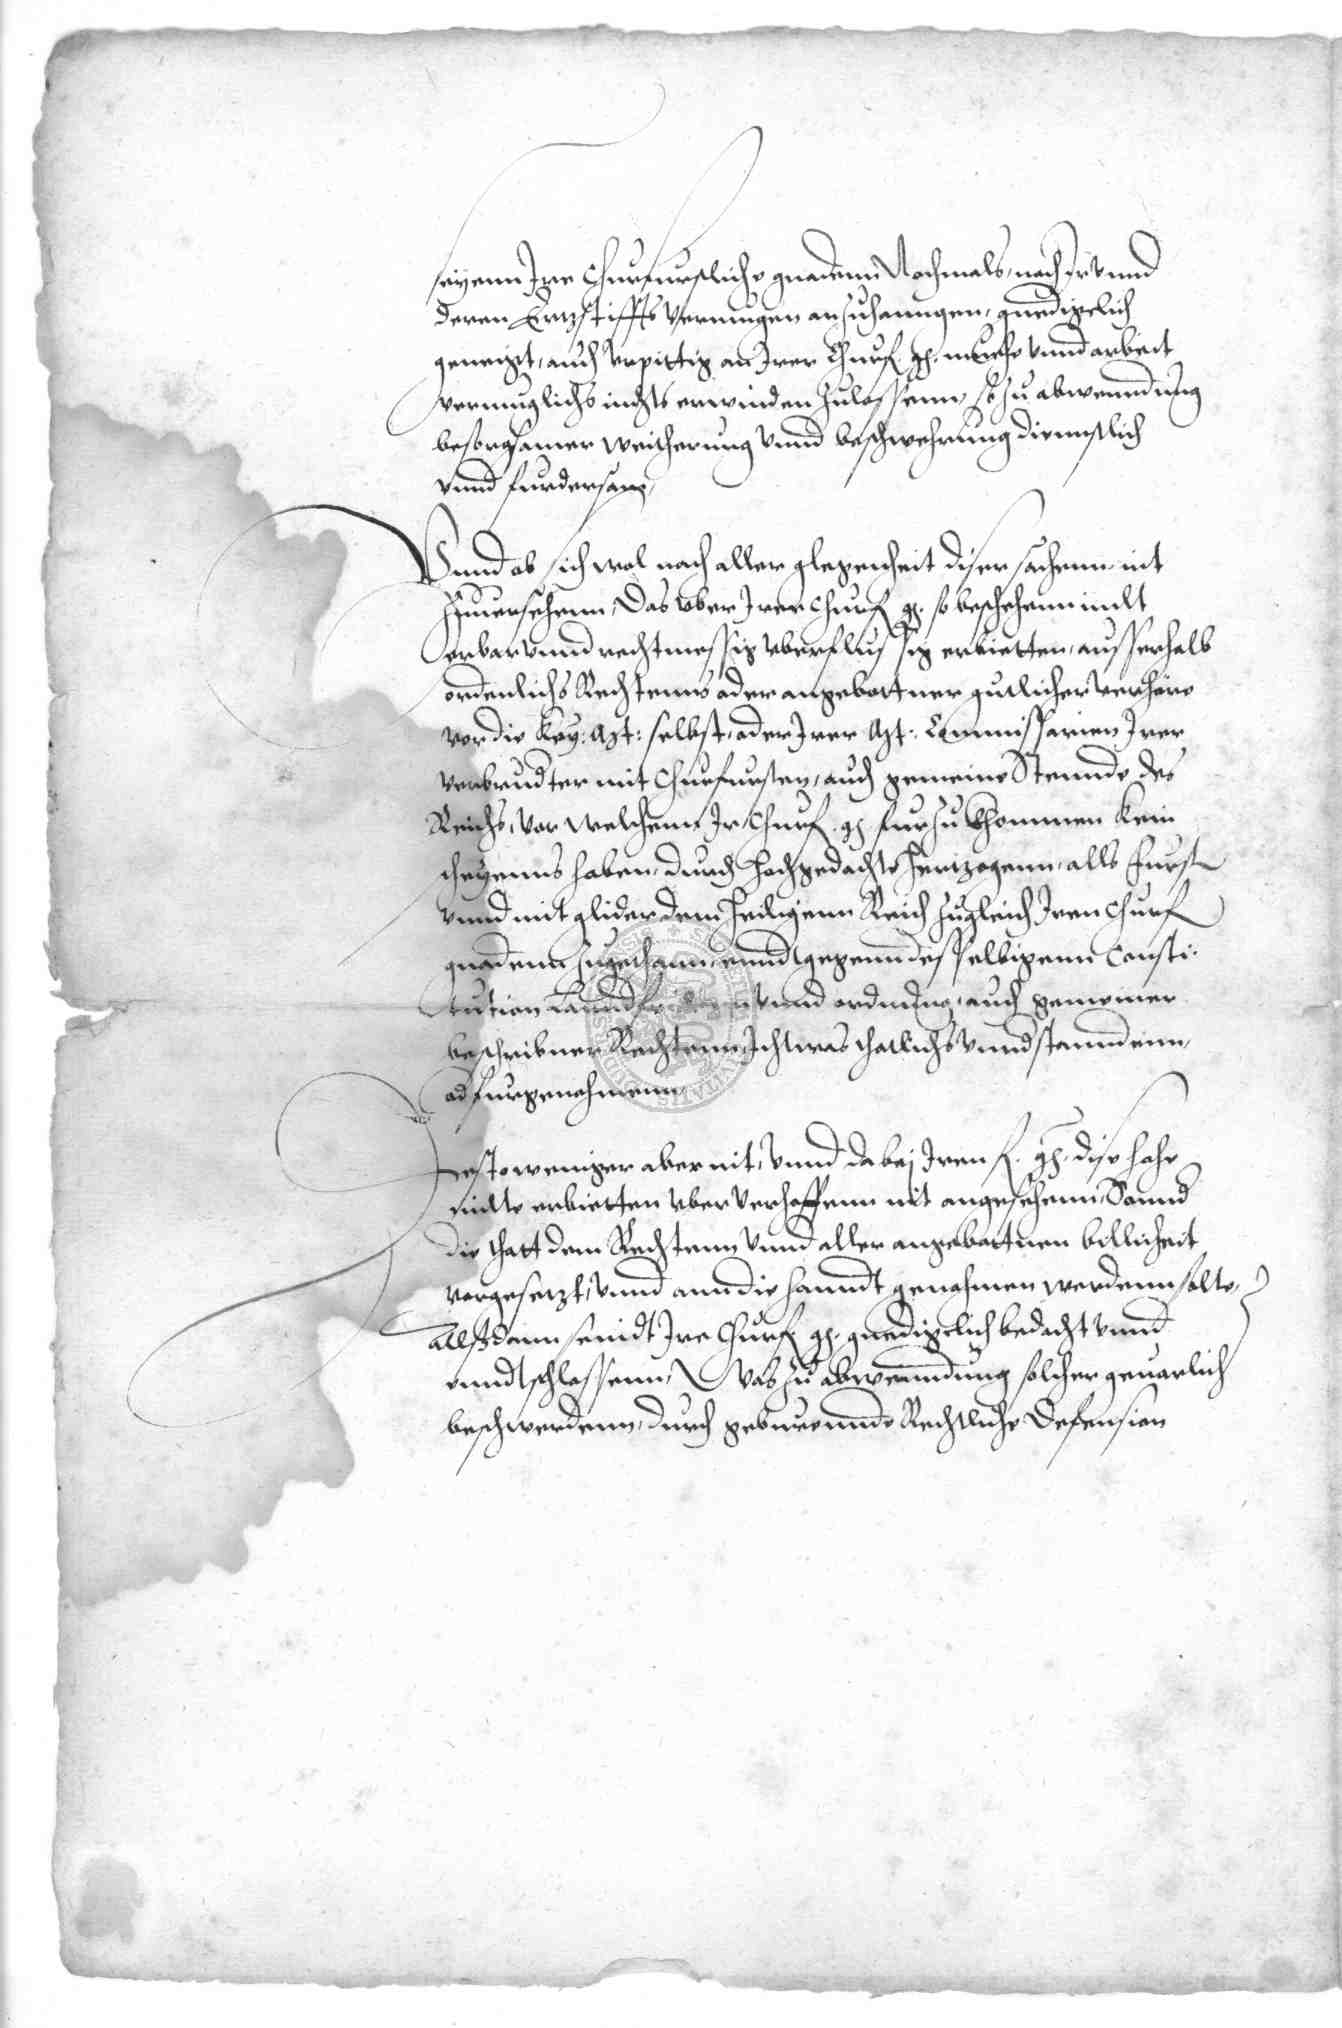 seyenn Ire Churfurstliche gnadenn Nochmals, nach Ir vnnd
deren Ertzstiffts vermugen anzuhanngen, gnediglich
geneigt, auch vrpittig an Irer Churf. g. muehe vnnd arbeit
vermuglichs nichts erwinden zulassenn, so zu abwenndung
besorgsamer weitherung vnnd beschwehrung diennstlich
vnnd furdersam,
Vnnd ob sich wol nach aller glegenheit diser sachenn, nit
zuuersehenn, Das vber Irer Churf. g. so beschehenn milt
erbar vnnd rechtmessig vberflussig erbietten, ausserhalb
ordenlichs Rechtenns oder angebottner gutlicher verhöre
vor die Key: Mt: selbst, oder Irer Mt: Commissarien Irer
verbrudter mit Churfursten, auch gemeine Stennde des
Reichs, vor welchenn Ir Churf. g. furzukhommen kein
scheyenns haben, durch hochgedachte Hertzogenn, alls furst
vnnd mit glider dem Heiligenn Reich zugleich Iren Churf
gnadenn zugethann, vnnd gegenn desselbigenn Consti:
tution Lanndfriden vnnd ordnung, auch gemeiner
beschribner Rechtenn, Ichtwas thatlichs vnndstanndenn,
od furgenohmenn,
Desto weniger aber nit, Vnnd da bej Iren f. g. dise hohe
milte erbietten vber verhoffenn nit angesehenn, Sonnd
die thatt dem Rechtenn vnnd aller angebottnen billicheit
vorgesetzt, vnnd ann die hanndt genohmen werdenn solte,
Allßdann seindt Ire Churf. g. gnediglich bedacht vnnd
enndtschlossenn, Was zu abwenndung solcher geuarlich
beschwerdenn, durch geburennde Rechtliche Defension